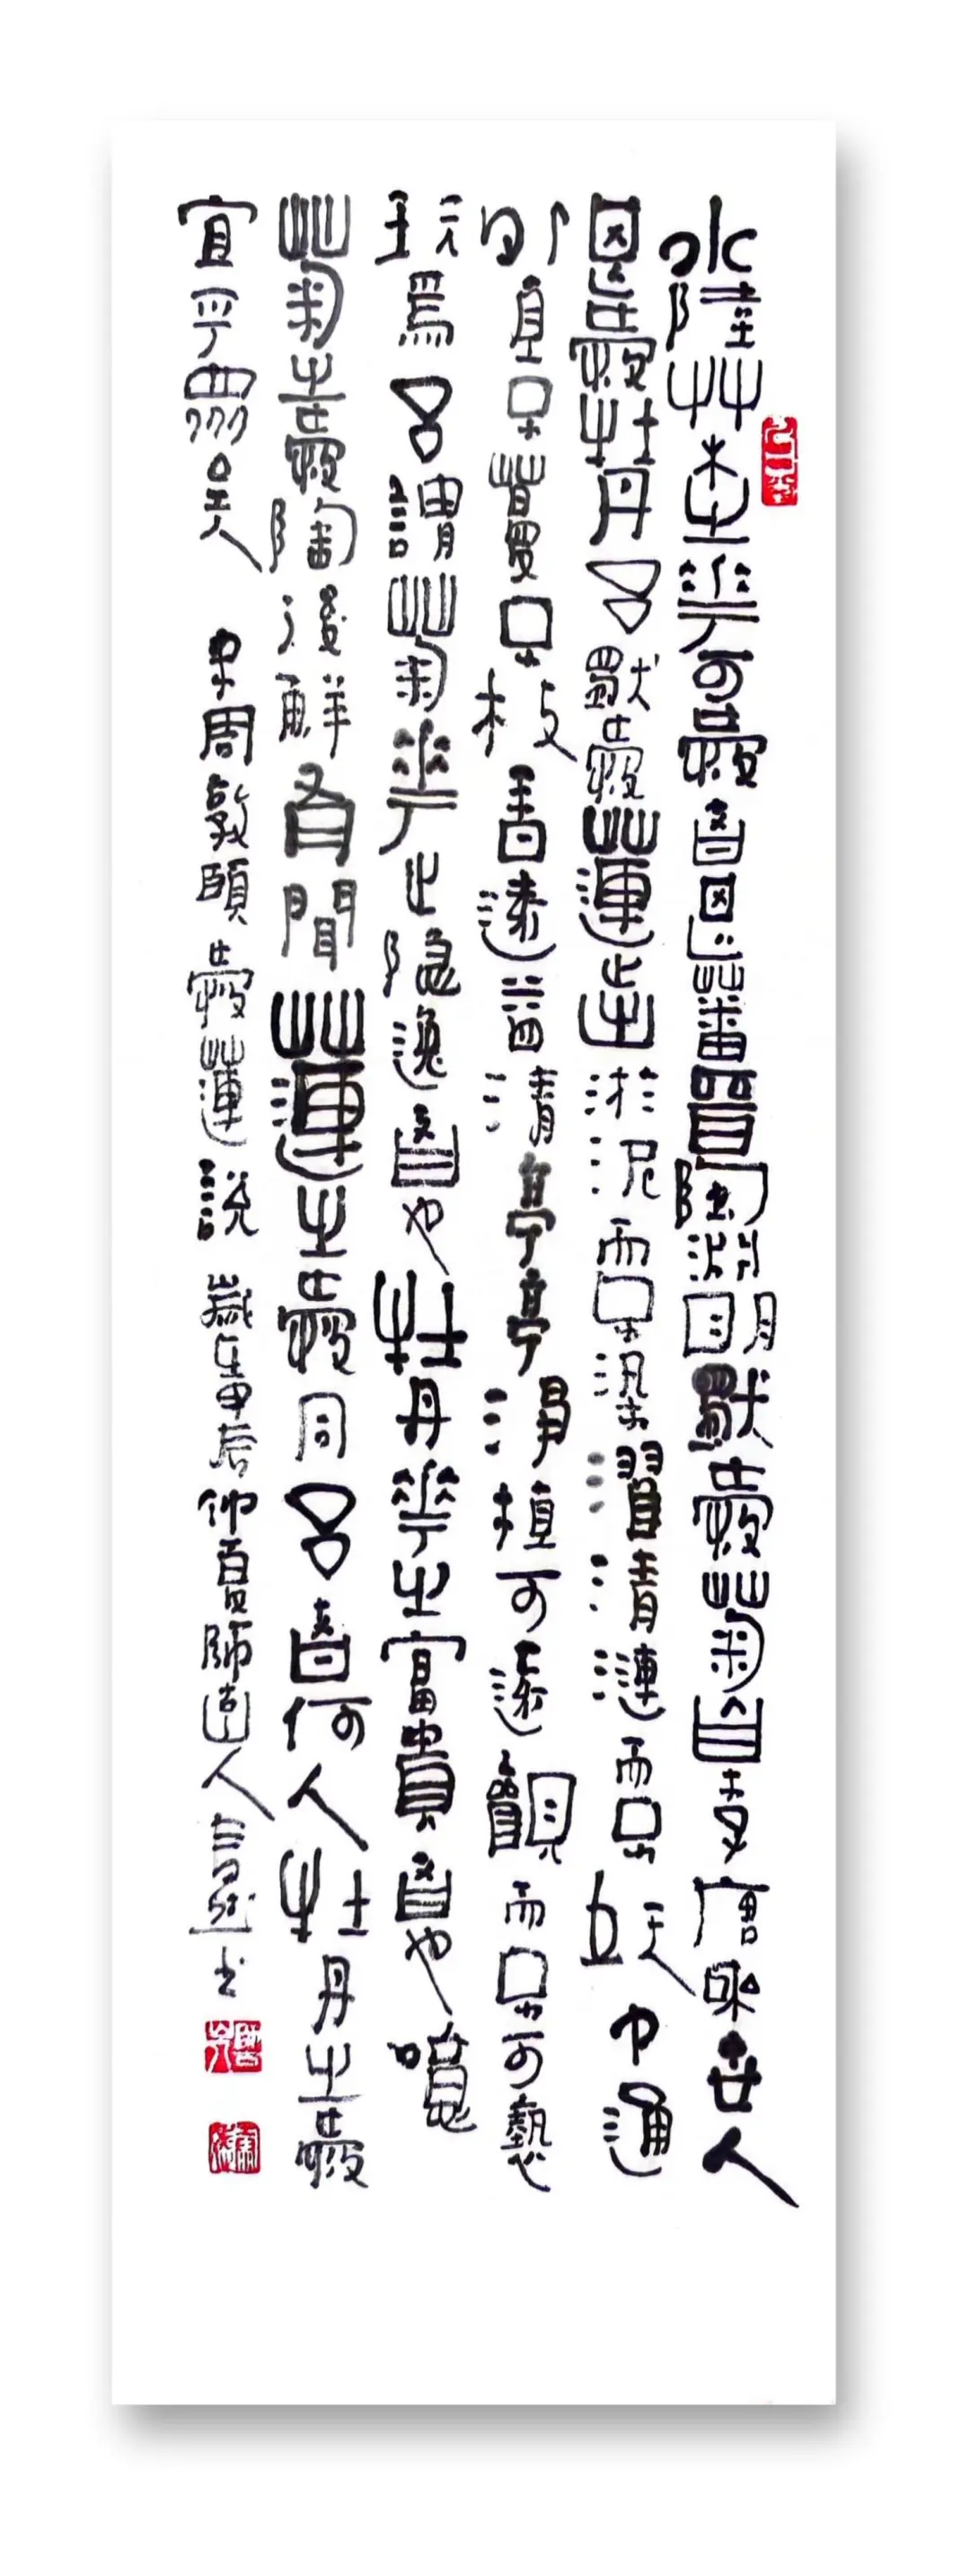 水陸艸木之華可愛者甚蕃晉陶淵明獨愛菊自李唐來世人
甚愛牡丹予獨愛蓮之出淤泥而不染濯清漣而不妖中通
外直不蔓不枝香遠益清亭亭淨植可遠觀而不可褻
玩焉予謂菊華之隱逸者也牡丹華之富貴者也噫
菊之愛陶後鮮有聞蓮之愛同予者何人牡丹之愛
宜乎眾矣 宋周敦頤愛蓮說 歲在甲辰仲夏師人書